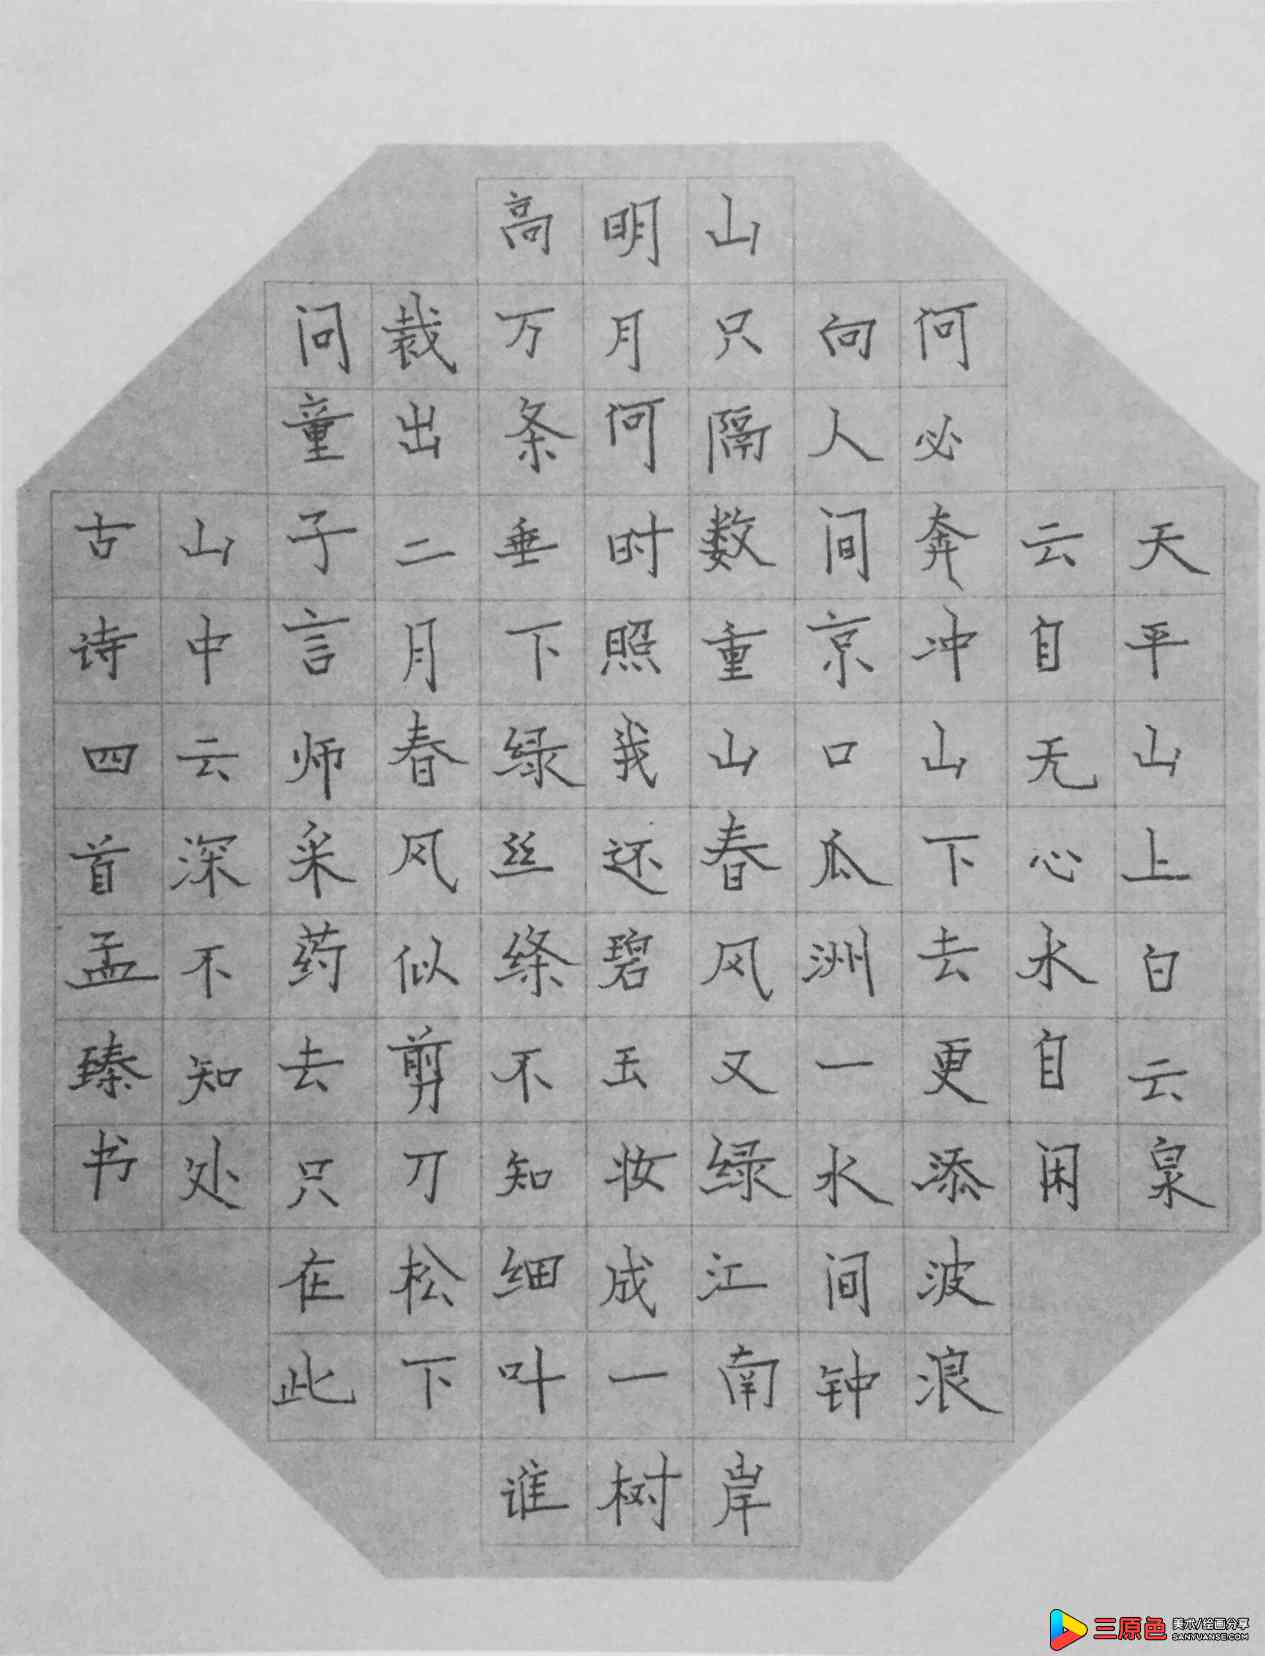 天平山上白云泉
云自无心水自闲
何必奔冲山下去更添波浪
向人间京口瓜洲一水间钟
山只隔数重山春风又绿江南岸
明月何时照我还碧玉妆成一树
高万条垂下绿丝绦不知细叶谁
裁出二月春风似剪刀松下
问童子言师采药去只在此
山中云深不知处
古诗四首孟臻书
三原色
美术/绘画分享
SANYUANSE.COM